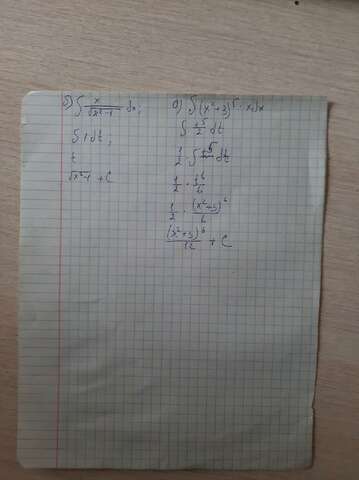 б) ∫ x/√(x²-1) dx,
∫ 1 dt,
t
√(x²-1) + C
a) ∫ (x²+3)⁵ · x dx
∫ t⁵/2 dt
1/2 · ∫ t⁵ dt
1/2 · t⁶/6
1/2 · (x²+3)⁶/6
(x²+3)⁶/12 + C